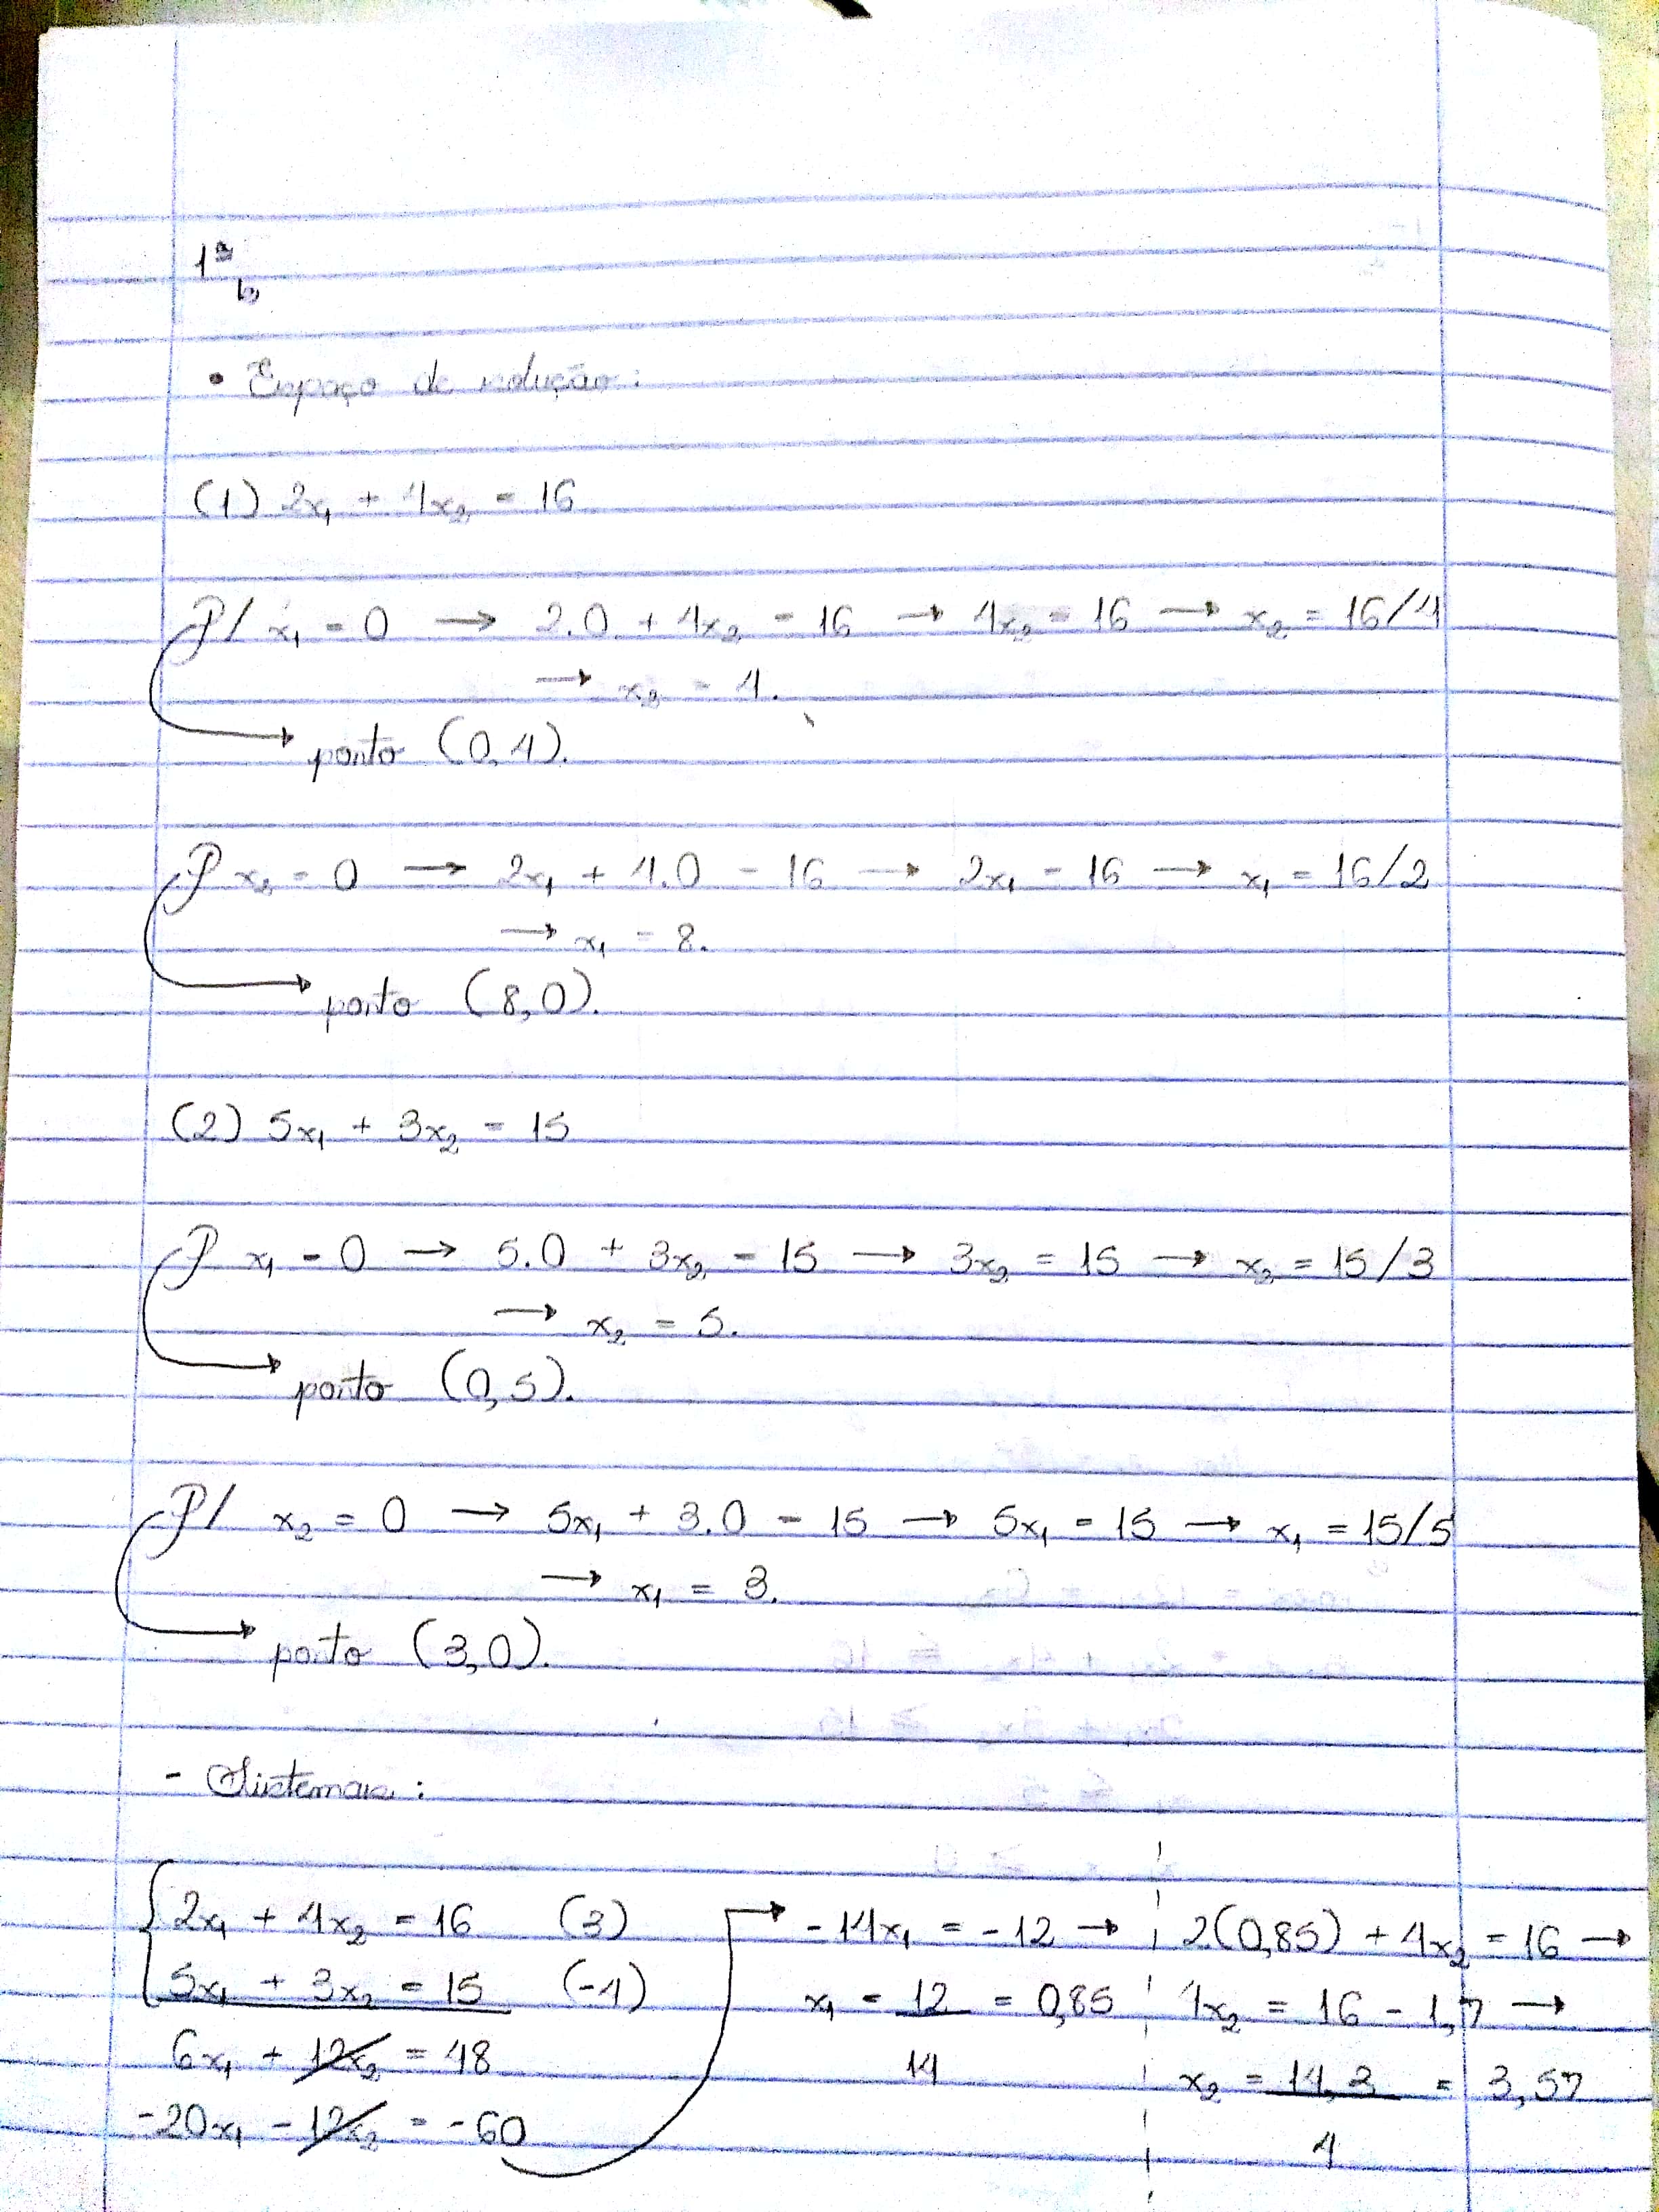 1ª
b)
• Espaço de solução:
(1) 2x₁ + 4x₂ = 16
P/ x₁ = 0 → 2.0 + 4x₂ = 16 → 4x₂ = 16 → x₂ = 16/4
→ x₂ = 4.
ponto (0,4).
P x₂ = 0 → 2x₁ + 4.0 = 16 → 2x₁ = 16 → x₁ = 16/2
→ x₁ = 8.
ponto (8,0).
(2) 5x₁ + 3x₂ = 15
P x₁ = 0 → 5.0 + 3x₂ = 15 → 3x₂ = 15 → x₂ = 15/3
→ x₂ = 5.
ponto (0,5).
P/ x₂ = 0 → 5x₁ + 3.0 = 15 → 5x₁ = 15 → x₁ = 15/5
→ x₁ = 3.
ponto (3,0).
- Sistemas:
2x₁ + 4x₂ = 16 (3) → -14x₁ = -12 → 2(0,85) + 4x₂ = 16 →
5x₁ + 3x₂ = 15 (-4) x₁ = 12/14 = 0,85 4x₂ = 16 - 1,7 →
6x₁ + 12x₂ = 48 x₂ = 14,3/4 = 3,57
-20x₁ - 12x₂ = -60